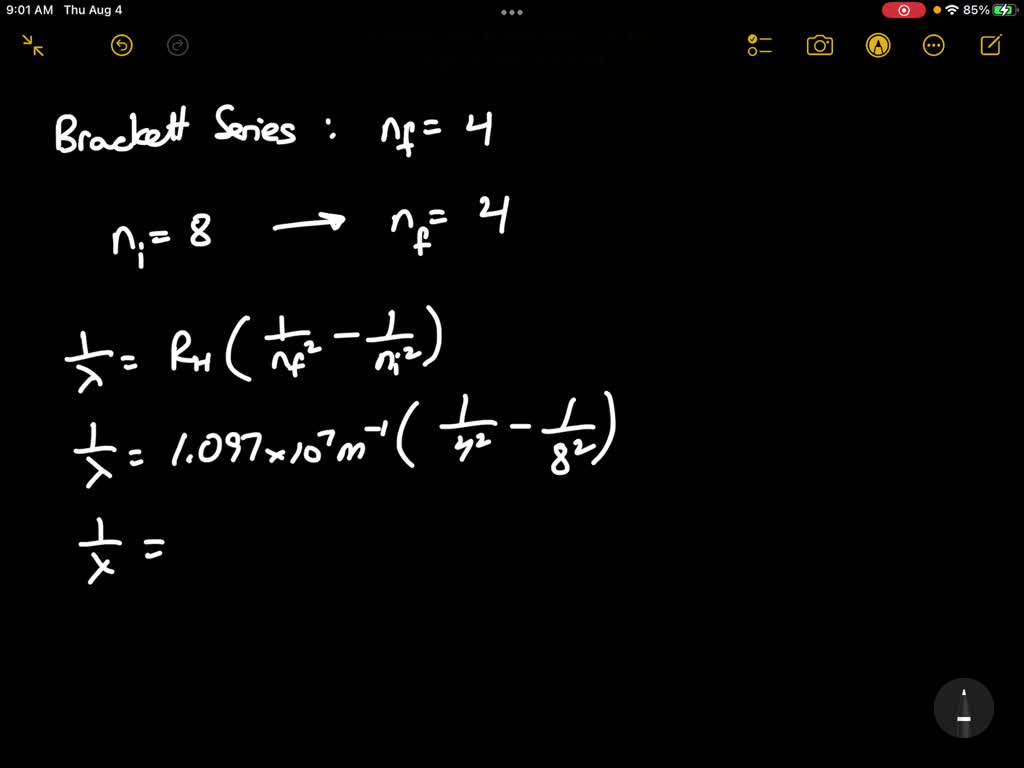 9:01 AM Thu Aug 4 85%
Brackett Series : nf = 4
ni = 8 → nf = 4
1/λ = RH ( 1/nf² - 1/ni² )
1/λ = 1.097 x 10⁷ m⁻¹ ( 1/4² - 1/8² )
1/λ =